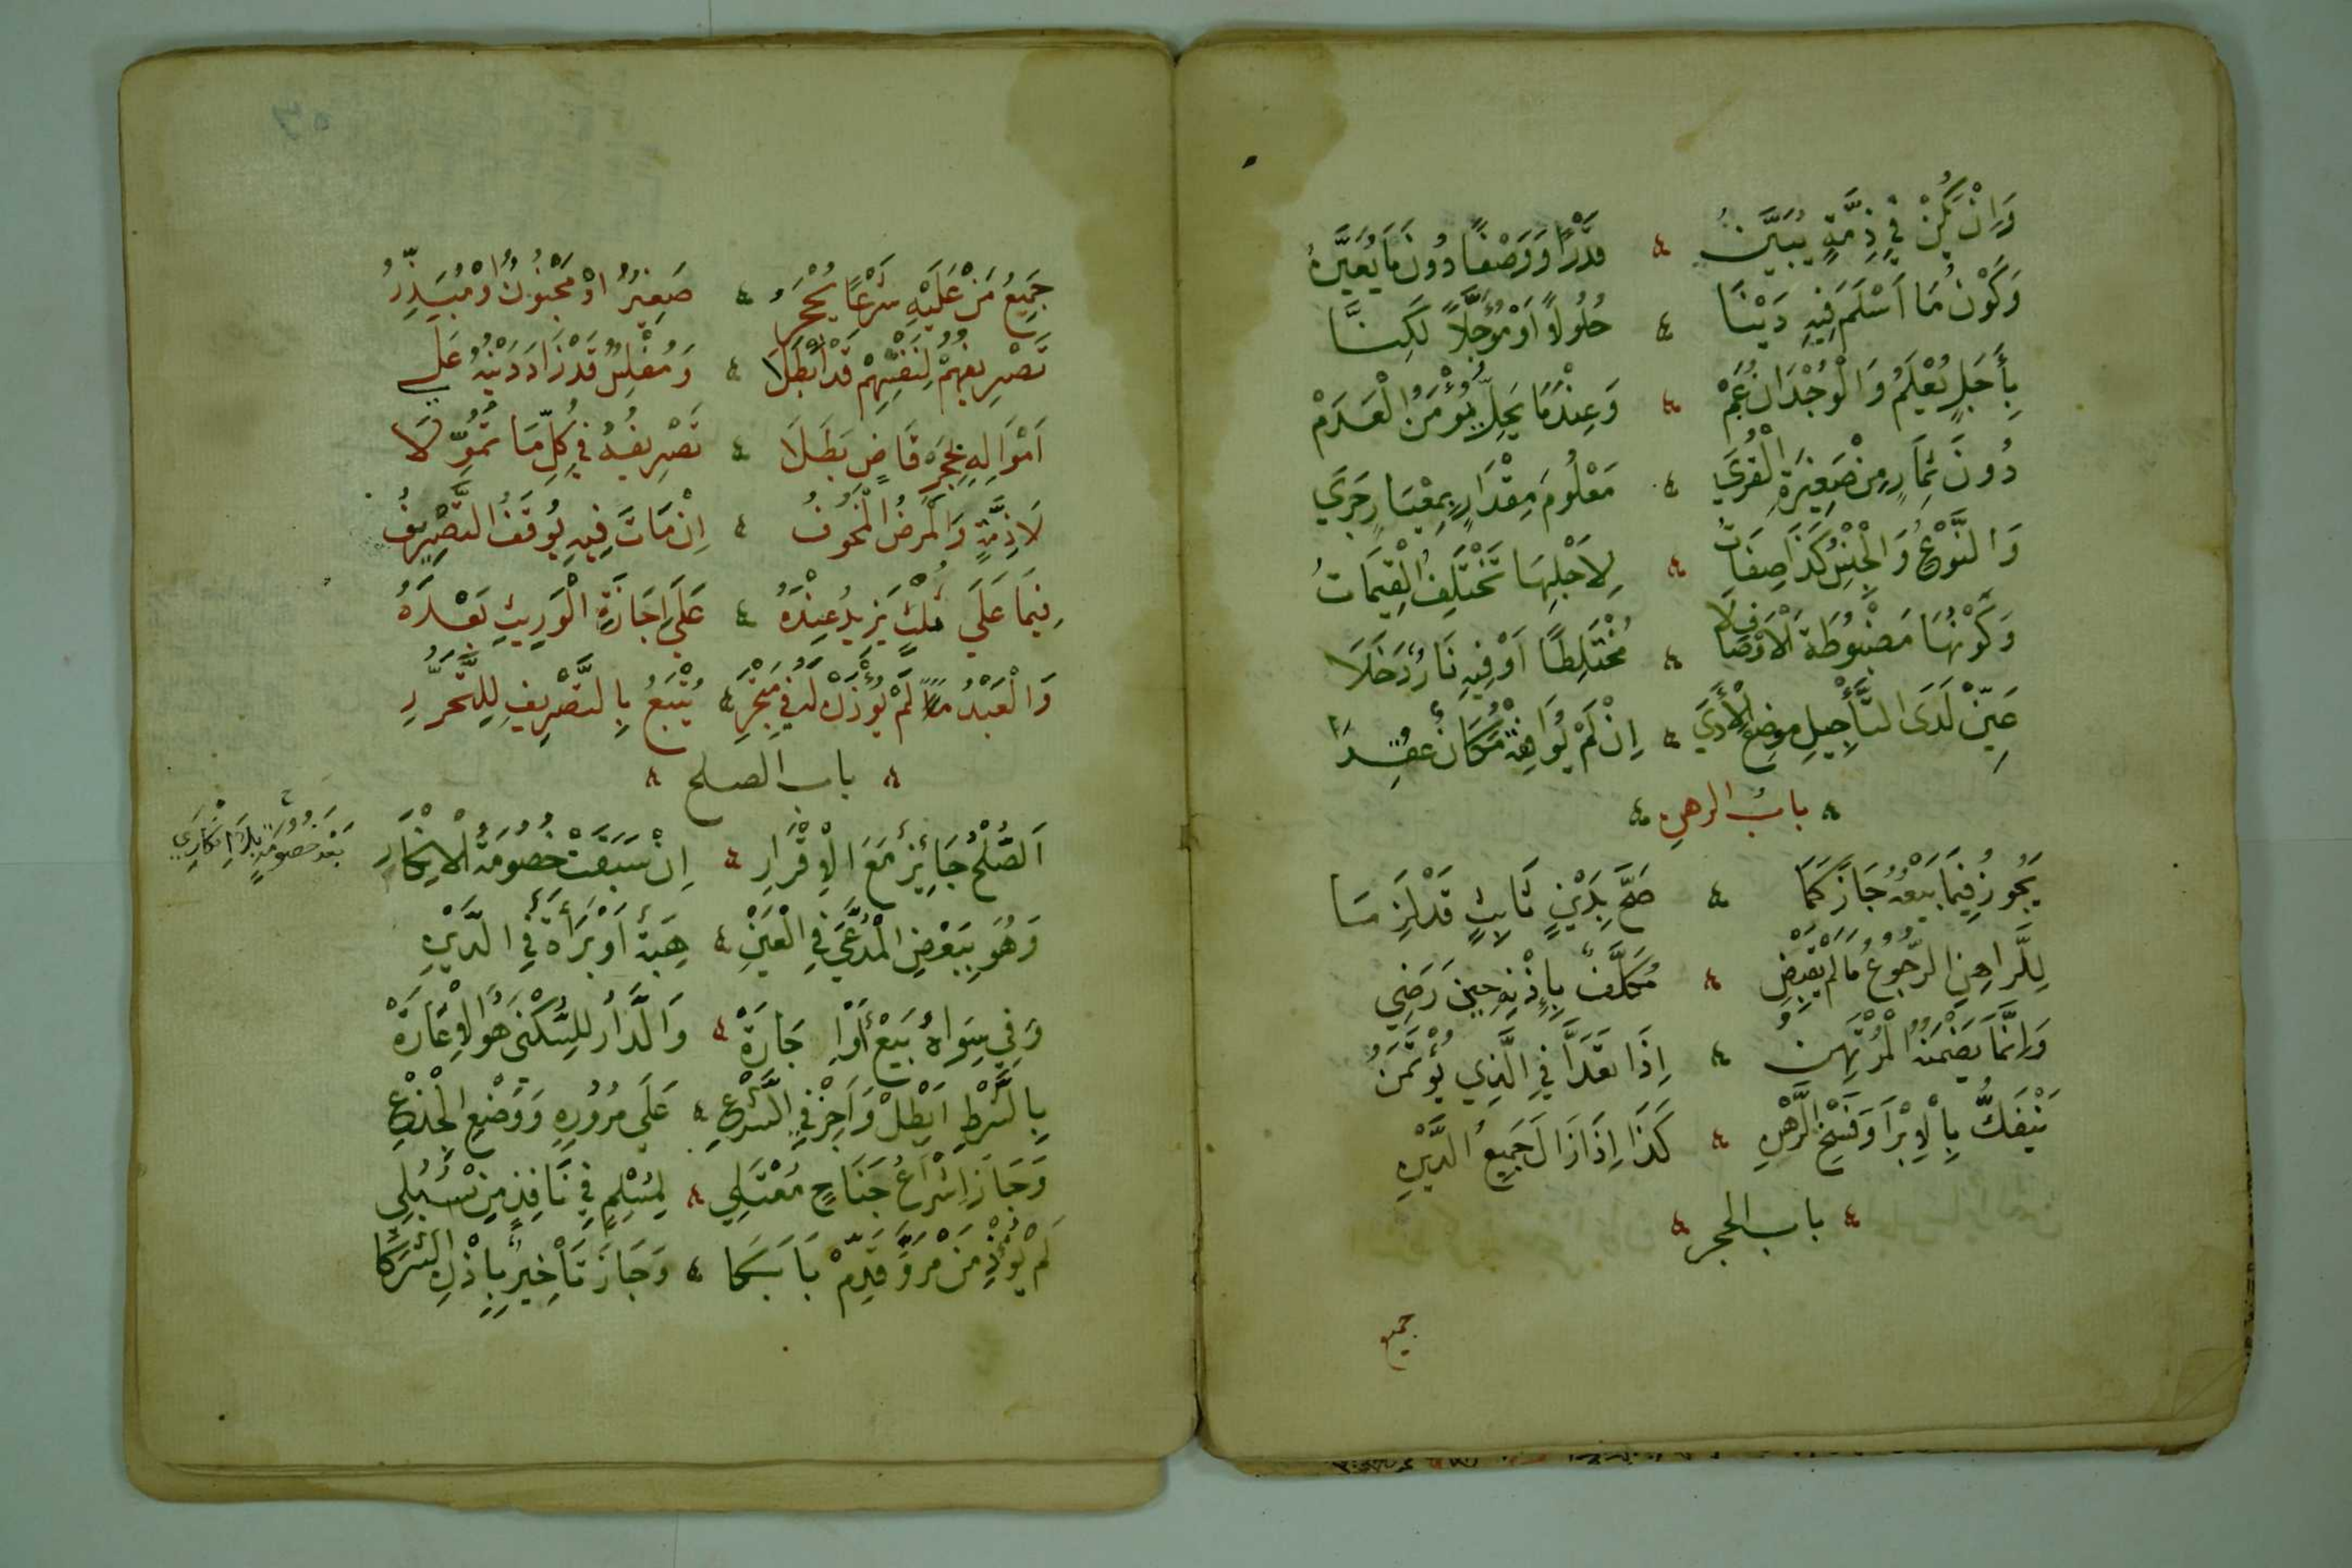 وَإِنْ يَكُنْ فِي ذِمَّةٍ يُبَيَّنُ ؞ قَدْرًا وَوَصْفًا دُونَ مَا يُعَيَّنُ
وَكَوْنُ مَا أَسْلَمَ فِيهِ دَيْنَا ؞ حُلُولًا أَوْ مُؤَجَّلًا لَكِنَّا
بِأَجَلٍ يُعْلَمُ وَالْوُجْدَانُ عَمْ ؞ وَعِنْدَمَا يَحِلُّ يُؤْمَنُ الْعَدَمْ
دُونَ ثِمَارٍ مِنْ صَغِيرَةِ الْقُرَى ؞ مَعْلُومَ مِقْدَارٍ بِمِعْيَارٍ جَرَى
وَالنَّوْعُ وَالْجِنْسُ كَذَا صِفَاتُ ؞ لِأَجْلِهَا تَخْتَلِفُ الْقِيمَاتُ
وَكَوْنُهَا مَضْبُوطَةَ الْأَوْصَافِ لَا ؞ مُخْتَلِطًا أَوْ فِيهِ نَارٌ دَخَلَا
عَيِّنْ لَدَى التَّأْجِيلِ مَوْضِعَ الْأَدَى ؞ إِنْ لَمْ يُوَافِقْهُ مَكَانٌ عُقِدَا
؞ بابُ الرهنِ ؞
يَجُوزُ فِيمَا بَيْعُهُ جَازَ كَمَا ؞ صَحَّ بِدَيْنٍ ثَابِتٍ قَدْ لَزِمَا
لِلرَّاهِنِ الرُّجُوعُ مَا لَمْ يَقْبِضِ ؞ مُكَلَّفٌ بِإِذْنِهِ حِينَ رَضِي
وَإِنَّمَا يَضْمَنُهُ الْمُرْتَهِنُ ؞ إِذَا تَعَدَّا فِي الَّذِي يُؤْتَمَنُ
يَنْفَكُّ بِالْإِبْرَا وَفَسْخِ الرَّهْنِ ؞ كَذَا إِذَا زَالَ جَمِيعُ الدَّيْنِ
؞ باب الحجر ؞
جميع
جَمِيعُ مَنْ عَلَيْهِ شَرْعًا يُحْجَرُ ؞ صَغِيرٌ اوْ مَجْنُونٌ اوْ مُبَذِّرُ
تَصْرِيفُهُمْ لِنَفْسِهِمْ قَدْ أُبْطِلَا ؞ وَمُفْلِسٌ قَدْ زَادَ دَيْنُهُ عَلَى
أَمْوَالِهِ بِحَجْرِ قَاضٍ بَطَلَا ؞ تَصْرِيفُهُ فِي كُلِّ مَا تُمُوِّلَا
لَا ذِمَّةٍ وَالْمَرَضُ الْمَخُوفُ ؞ إِنْ مَاتَ فِيهِ يُوقَفُ التَّصْرِيفُ
فِيمَا عَلَى ثُلْثٍ يَزِيدُ عِنْدَهُ ؞ عَلَى إِجَازَةِ الْوَرِيثِ بَعْدَهُ
وَالْعَبْدُ لَمْ يُؤْذَنْ لَهُ فِي مَتْجَرِ ؞ يُتْبَعُ بِالتَّصْرِيفِ لِلتَّحَرُّرِ
؞ باب الصلح ؞
اَلصُّلْحُ جَائِزٌ مَعَ الْإِقْرَارِ ؞ إِنْ سَبَقَتْ خُصُومَةُ الْإِنْكَارِ
بَعْدَ خُصُومَةٍ بِلَا إِنْكَارِي
وَهُوَ بِبَعْضِ الْمُدَّعَى فِي الْعَيْنِ ؞ هِبَةٌ أَوْ بَرَأَةٌ فِي الدَّيْنِ
وَفِي سِوَاهُ بَيْعٌ أَوْ إِجَارَةْ ؞ وَالدَّارُ لِلسُّكْنَى هُوَ الْإِعَارَةْ
بِالشَّرْطِ أَبْطِلْ وَأَجِزْ فِي الشَّرْعِ ؞ عَلَى مُرُورِهِ وَوَضْعِ الْجِذْعِ
وَجَازَ إِشْرَاعُ جَنَاحٍ مُعْتَلِي ؞ لِمُسْلِمٍ فِي نَافِذٍ مِنْ سُبُلِي
لَمْ يُؤْذِ مَنْ مَرَّ وَقَدِّمْ بَابَكَا ؞ وَجَازَ تَأْخِيرٌ بِإِذْنِ الشُّرَكَا